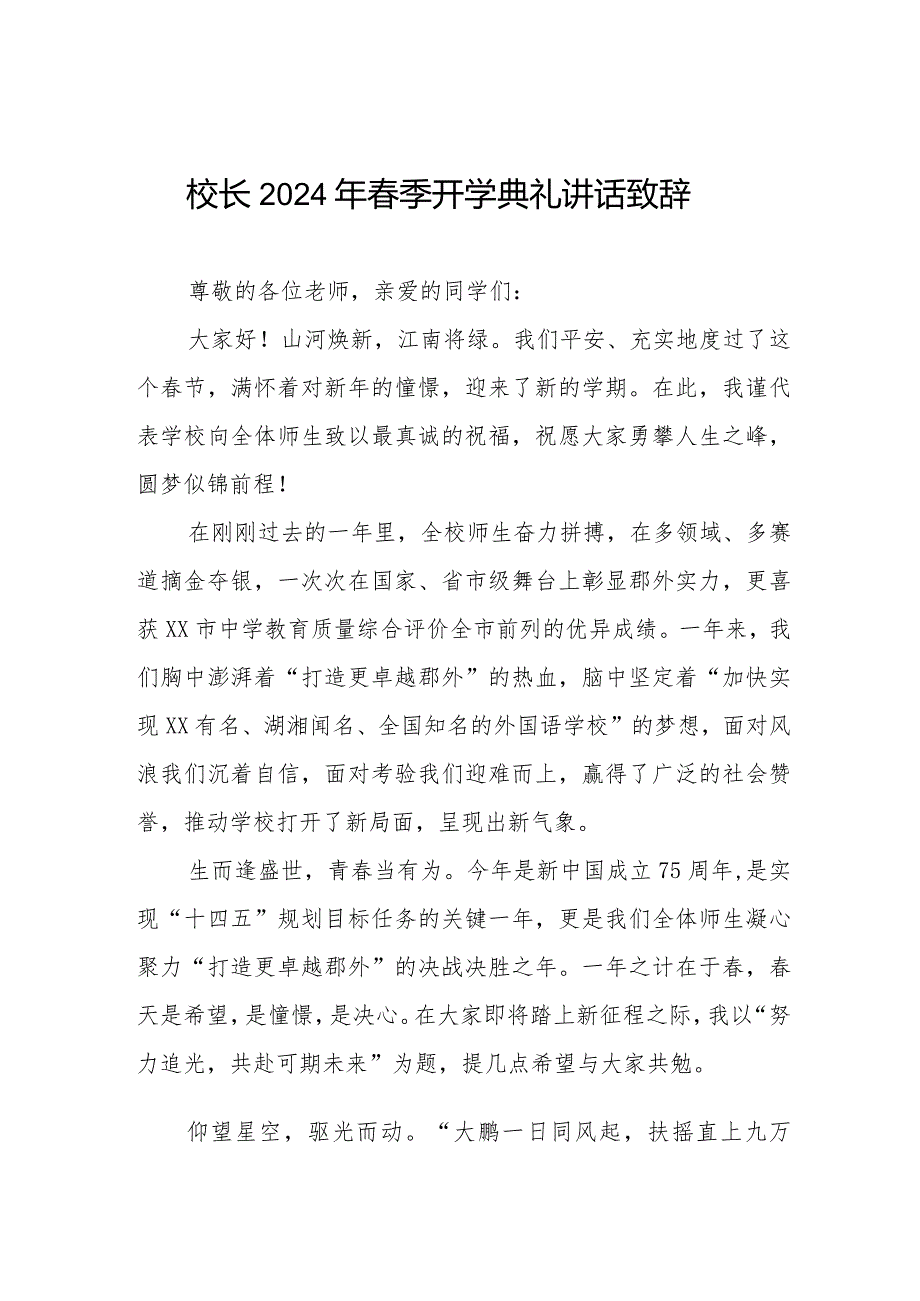 校长2024年春季开学典礼讲话致辞
尊敬的各位老师，亲爱的同学们：
大家好！山河焕新，江南将绿。我们平安、充实地度过了这
个春节，满怀着对新年的憧憬，迎来了新的学期。在此，我谨代
表学校向全体师生致以最真诚的祝福，祝愿大家勇攀人生之峰，
圆梦似锦前程！
在刚刚过去的一年里，全校师生奋力拼搏，在多领域、多赛
道摘金夺银，一次次在国家、省市级舞台上彰显郡外实力，更喜
获XX市中学教育质量综合评价全市前列的优异成绩。一年来，我
们胸中澎湃着“打造更卓越郡外”的热血，脑中坚定着“加快实
现XX有名、湖湘闻名、全国知名的外国语学校”的梦想，面对风
浪我们沉着自信，面对考验我们迎难而上，赢得了广泛的社会赞
誉，推动学校打开了新局面，呈现出新气象。
生而逢盛世，青春当有为。今年是新中国成立75周年,是实
现“十四五”规划目标任务的关键一年，更是我们全体师生凝心
聚力“打造更卓越郡外”的决战决胜之年。一年之计在于春，春
天是希望,是憧憬,是决心。在大家即将踏上新征程之际,我以“努
力追光，共赴可期未来”为题，提几点希望与大家共勉。
仰望星空，驱光而动。“大鹏一日同风起，扶摇直上九万